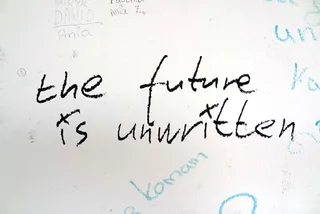 DAVID
Ania
the future
is unwritten
Komain